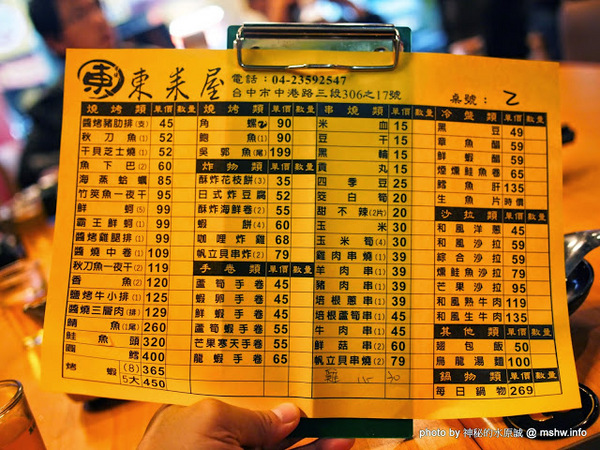 東 東羊屋
電話：04-23592547
台中市中港路三段306之17號
桌號： 乙
燒烤類 單價 數量
醬烤豬肋排(支) 45
秋刀魚(1) 52
干貝芝士燒(1) 52
魚下巴(2) 60
海蒸蛤蠣 85
竹筴魚一夜干 95
鮮蚵(5) 99
霸王鮮蚵(1) 99
醬烤雞腿排(1) 99
醬燒中卷(1) 109
秋刀魚一夜干(2) 119
香魚(2) 120
鹽烤牛小排(1) 125
醬燒三層肉(排) 129
鯖魚(1尾) 260
鮭魚頭 320
圓鱈 400
烤蝦 (8) 365
5大 450
燒烤類 單價 數量
角螺 90
鮑魚(1) 90
吳郭魚(尾) 199
炸物類 單價 數量
酥炸花枝餅(3) 35
日式炸豆腐 52
酥炸海鮮卷(2) 55
蝦餅(4) 60
咖哩炸雞 68
帆立貝串炸(2) 79
手卷類 單價 數量
蘆筍手卷 45
蝦卵手卷 45
鮮蝦手卷 45
蘆筍蝦手卷 55
芒果寒天手卷 55
龍蝦手卷 65
串燒類 單價 數量
米血 15
豆干 15
黑輪 15
貢丸 15
四季豆 25
茭白筍 20
甜不辣(2片) 20
玉米 30
玉米筍(4) 30
雞肉串(1) 39
羊肉串(1) 39
豬肉串(1) 39
培根蔥串(1) 39
培根蘆筍串(1) 45
牛肉串(1) 45
鮮菇串(2) 60
帆立貝串燒(2) 79
冷盤類 單價 數量
黑豆 49
章魚醋 59
鮮蝦醋 59
煙燻鮭魚卷 65
鱈魚肝 135
生魚片 時價
沙拉類 單價 數量
和風洋蔥 45
和風沙拉 59
綜合沙拉 59
燻鮭魚沙拉 79
芒果沙拉 95
和風熟牛肉 119
和風生牛肉 135
其他類 單價 數量
翅包飯 50
烏龍湯麵 100
鍋物類 單價 數量
每日鍋物 269
photo by 神秘的水原誠 @ mshw.info